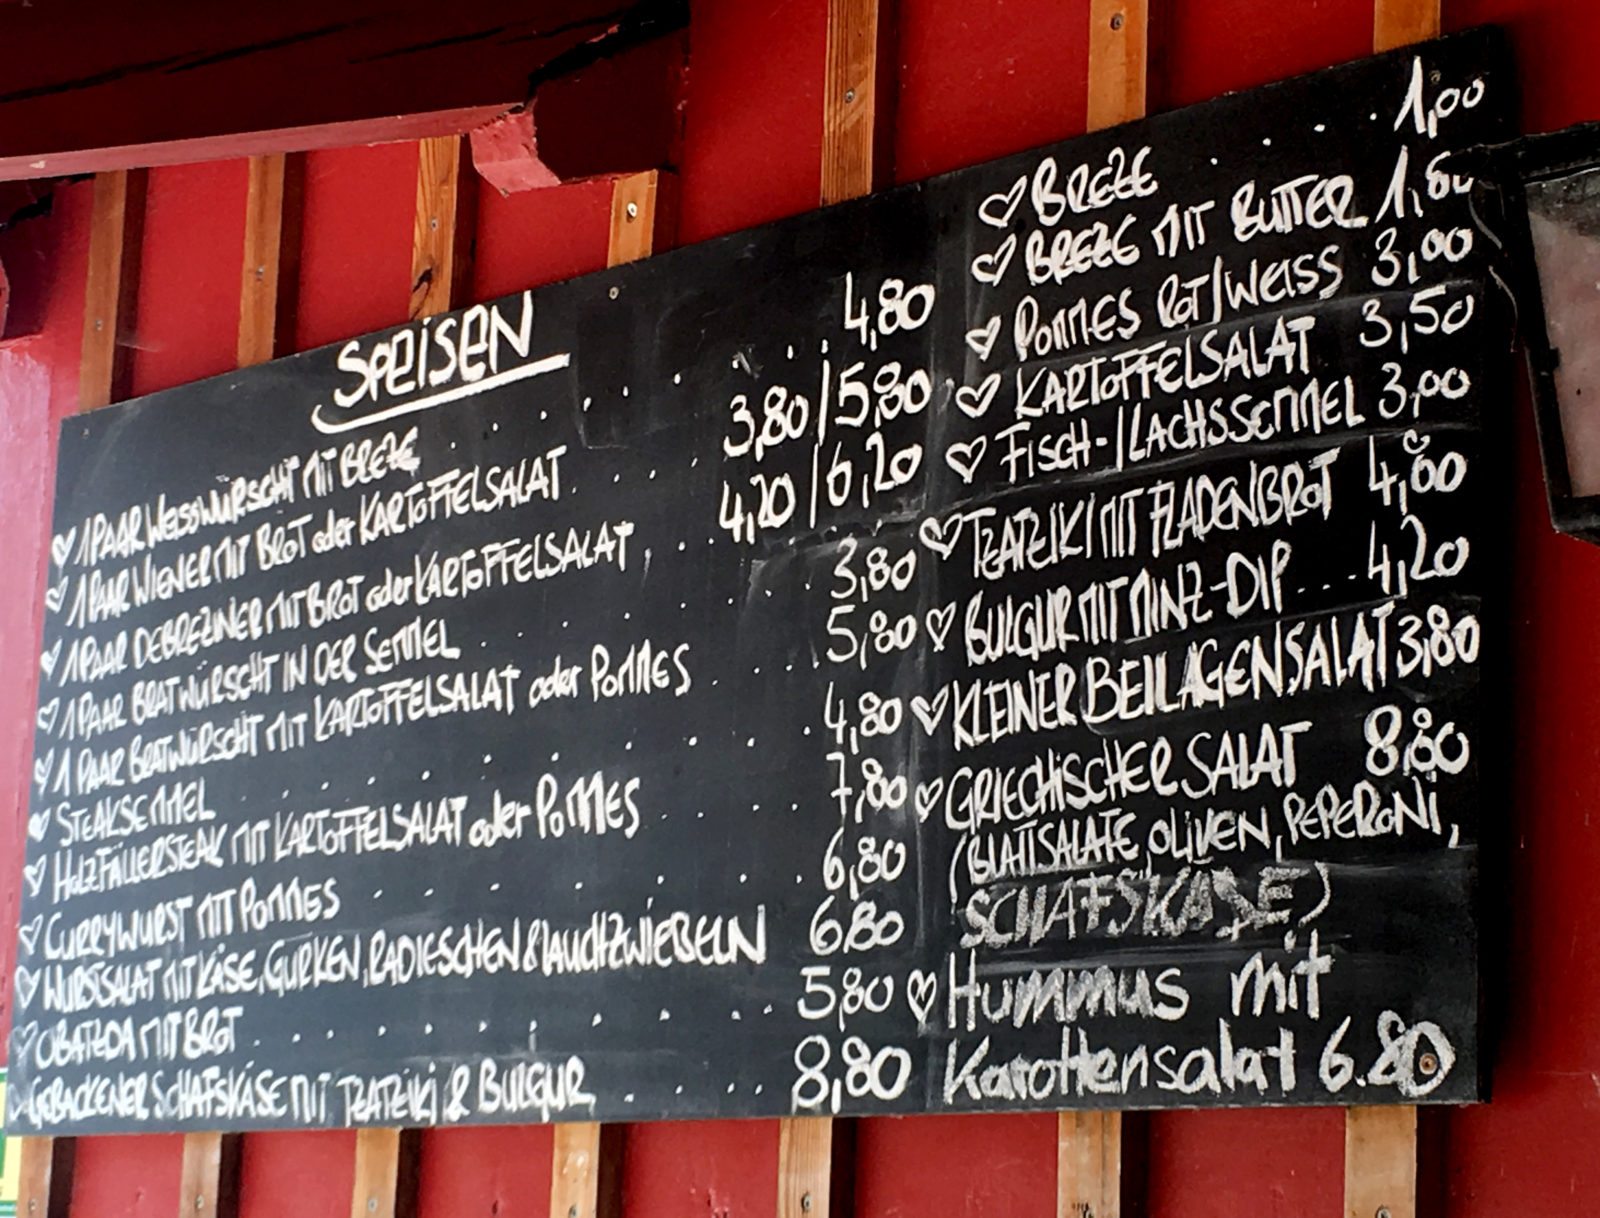 SPEISEN
♡ 1 PAAR WEISSWÜRSCHT MIT BREZE . . . . . . . 4,80
♡ 1 PAAR WIENER MIT BROT oder KARTOFFELSALAT . . . . 3,80/5,80
♡ 1 PAAR DEBREZINER MIT BROT oder KARTOFFELSALAT . . . 4,20/6,20
♡ 1 PAAR BRATWÜRSCHT IN DER SEMMEL . . . . . . . 3,80
♡ 1 PAAR BRATWÜRSCHT MIT KARTOFFELSALAT oder POMMES . . . . 5,80
♡ STEAKSEMMEL . . . . . . . . 4,80
♡ HOLZFÄLLERSTEAK MIT KARTOFFELSALAT oder POMMES . . . . 7,80
♡ CURRYWURST MIT POMMES . . . . . . . . 6,80
♡ WURSTSALAT MIT KÄSE, GURKEN, RADIESCHEN & LAUCHZWIEBELN 6,80
♡ OBATZDA MIT BROT . . . . . . . . . . 5,80
♡ GEBACKENER SCHAFSKÄSE MIT TZATZIKI & BULGUR . . . . 8,80
♡ BREZE . . . . . 1,00
♡ BREZE MIT BUTTER
♡ POMMES ROT/WEISS 3,00
♡ KARTOFFELSALAT 3,50
♡ FISCH-/LACHSSEMMEL 3,00
♡ TZATZIKI MIT FLADENBROT 4,00
♡ BULGUR MIT MINZ-DIP . . . 4,20
♡ KLEINER BEILAGENSALAT 3,80
♡ GRIECHISCHER SALAT 8,80
(BLATTSALATE, OLIVEN, PEPERONI,
SCHAFSKÄSE)
♡ Hummus mit
Karottensalat 6.80